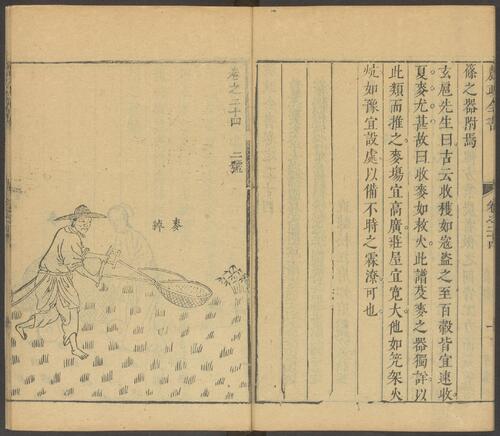 農政全書
卷之二十四
一
篠之器附焉
玄扈先生曰古云收穫如寇盜之至百穀皆宜速收
夏麥尤甚故曰收麥如救火此譜芟麥之器獨詳以
此類而推之麥場宜高廣莊屋宜寬大他如筅架火
炕如豫宜設處以備不時之霖潦可也
卷之二十四 二號
麥綽